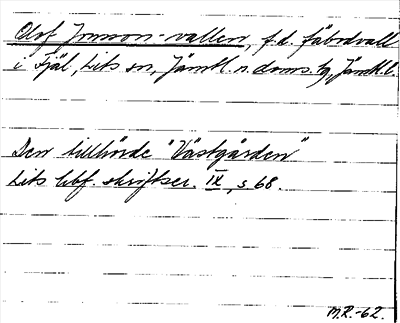 Olof Jonson-vallen, f.d. fäbodvall
i Fjäl, Lits sn, Jämtl. n. doms. tg, Jämtl. l.
Den tillhörde "Västgården"
Lits hbf. skriftser. IX, s. 68.
M.R.-62.